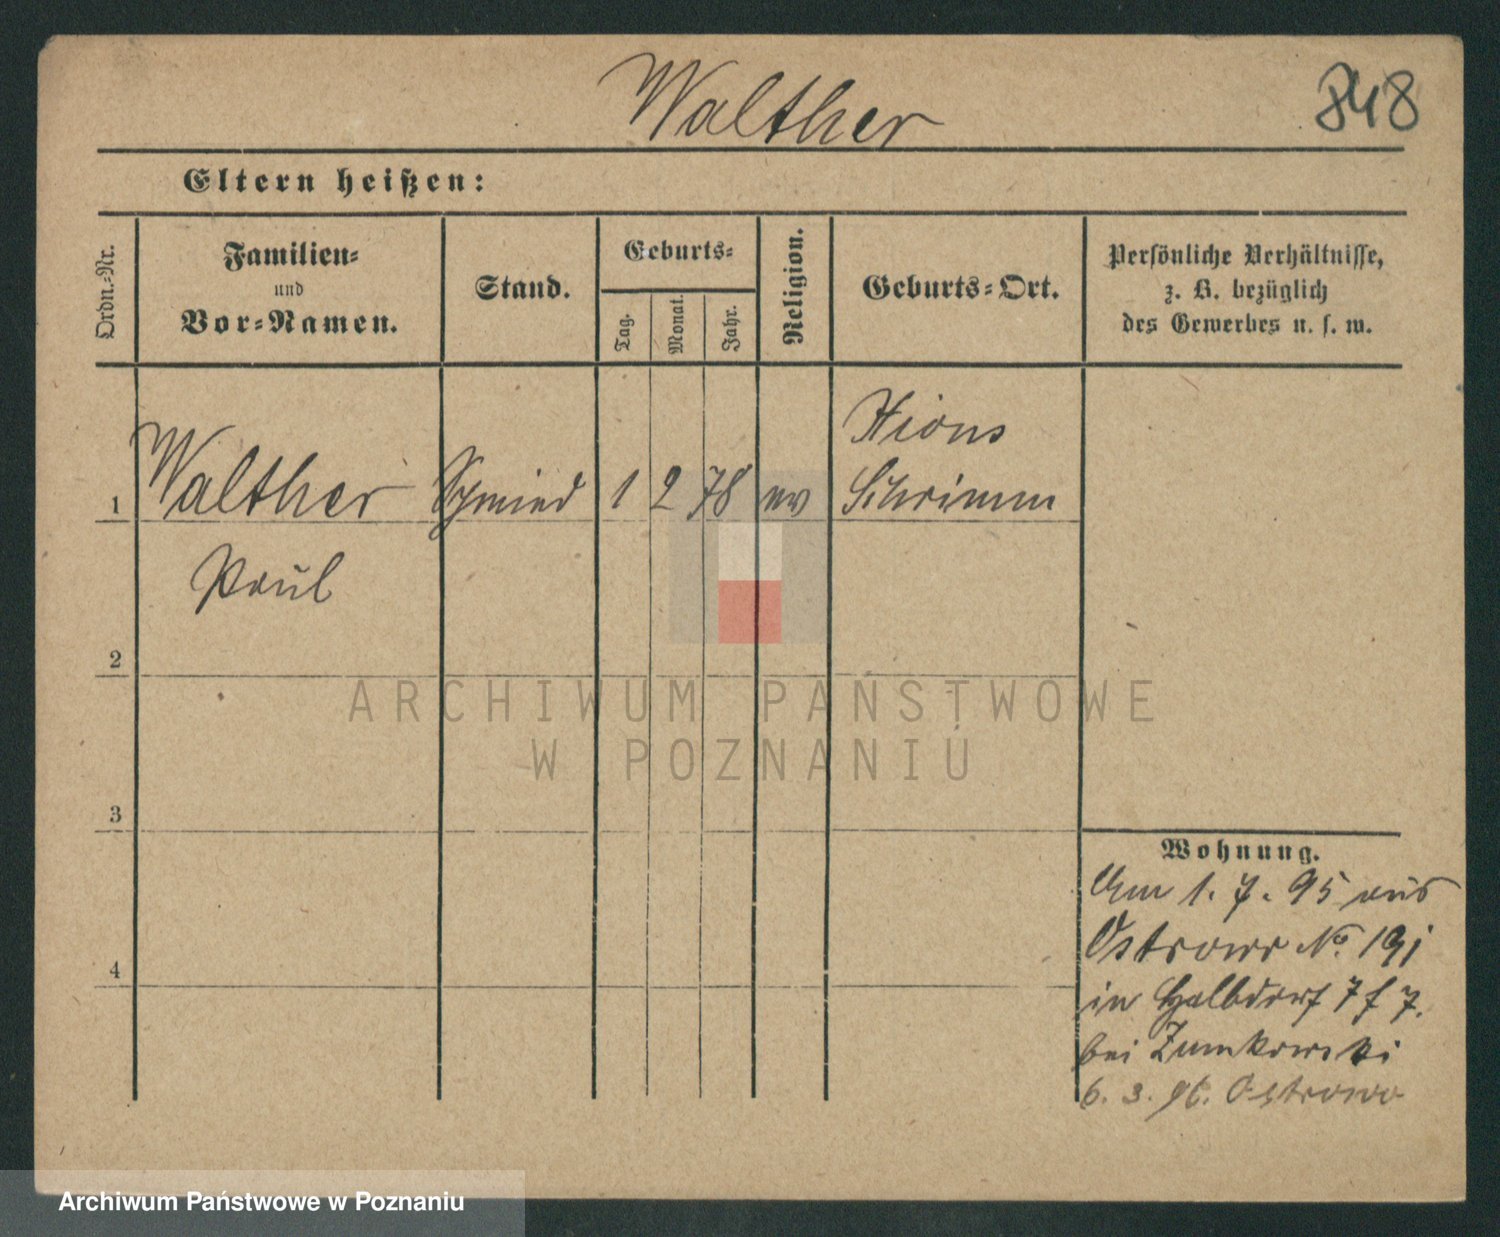 Walther
848
Eltern heißen:
Ordn.-Nr.
Familien-
und
Vor-Namen.
Stand.
Geburts-
Tag.
Monat.
Jahr.
Religion.
Geburts-Ort.
Persönliche Verhältnisse,
z. B. bezüglich
des Gewerbes u. s. w.
Xions
1 Walther Schmied 1 2 78 ev Schrimm
Paul
2
ARCHIWUM PAŃSTWOWE
W POZNANIU
3
Wohnung.
Am 1. 7. 95 aus
Ostrowo No. 191
in Halbdorf 7 f 7.
bei Zumkowski
6. 3. 96. Ostrowo
4
Archiwum Państwowe w Poznaniu